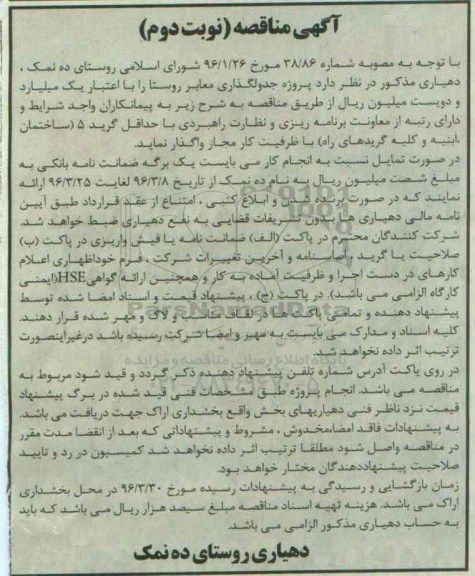 آگهی مناقصه (نوبت دوم)
با توجه به مصوبه شماره ۳۸/۸۶ مورخ ۹۶/۱/۲۶ شورای اسلامی روستای ده نمک ،
دهیاری مذکور در نظر دارد پروژه جدولگذاری معابر روستا را با اعتبار یک میلیارد
و دویست میلیون ریال از طریق مناقصه به شرح زیر به پیمانکاران واجد شرایط و
دارای رتبه از معاونت برنامه ریزی و نظارت راهبردی با حداقل گرید ۵ (ساختمان
،ابنیه و کلیه گریدهای راه) با ظرفیت کار مجاز واگذار نماید.
در صورت تمایل نسبت به انجام کار می بایست یک برگه ضمانت نامه بانکی به
مبلغ شصت میلیون ریال به نام ده نمک از تاریخ ۹۶/۳/۸ لغایت ۹۶/۳/۲۵ ارائه
نمایند که در صورت برنده شدن و ابلاغ کتبی ، امتناع از عقد قرارداد طبق آیین
نامه مالی دهیاری ها بدون تشریفات قضایی به نفع دهیاری ضبط خواهد شد.
شرکت کنندگان محترم در پاکت (الف) ضمانت نامه یا فیش واریزی در پاکت (ب)
صلاحیت یا گرید ، اساسنامه و آخرین تغییرات شرکت ، فرم خوداظهاری اعلام
کارهای در دست اجرا و ظرفیت آماده به کار و همچنین ارائه گواهی HSE(ایمنی
کارگاه الزامی می باشد). در پاکت (ج) ، پیشنهاد قیمت و اسناد امضا شده توسط
پیشنهاد دهنده و تمامی پاکت ها در لفاف مناسب و لاک و مهر شده قرار دهند.
کلیه اسناد و مدارک می بایست به مهر و امضا شرکت رسیده باشد درغیراینصورت
ترتیب اثر داده نخواهد
در روی پاکت آدرس شماره تلفن پیشنهاد دهنده ذکر گردد و قید شود مربوط به
مناقصه می باشد. انجام پروژه طبق مشخصات فنی قید شده در برگ پیشنهاد
قیمت نزد ناظر فنی دهیاریهای بخش واقع بخشداری اراک جهت دریافت می باشد.
به پیشنهادات فاقد امضا،مخدوش ، مشروط و پیشنهاداتی که بعد از انقضا مدت مقرر
در مناقصه واصل شود مطلقا ترتیب اثر داده نخواهد شد کمیسیون در رد و تایید
صلاحیت پیشنهاددهندگان مختار خواهد بود.
زمان بازگشایی و رسیدگی به پیشنهادات رسیده مورخ ۹۶/۳/۳۰ در محل بخشداری
اراک می باشد. هزینه تهیه اسناد مناقصه مبلغ سیصد هزار ریال می باشد که باید
به حساب دهیاری مذکور الزامی می باشد.
دهیاری روستای ده نمک